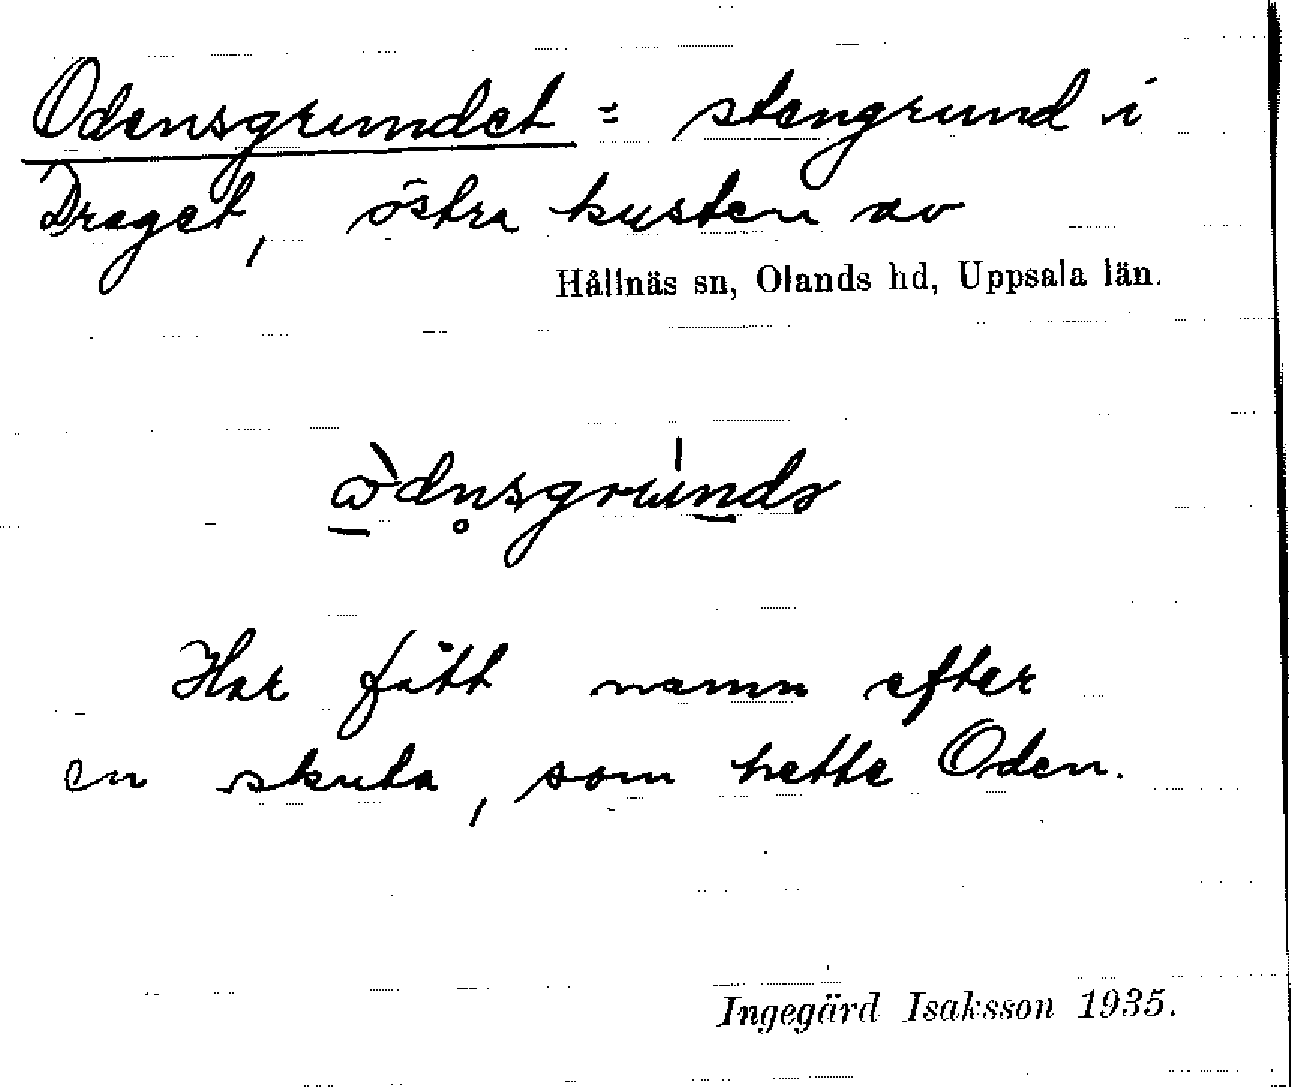 Odensgrundet = stengrund i
Draget, östra kusten av
Hållnäs sn, Olands hd, Uppsala län.
ὼ̱dn̥sgru̍n̠də
Har fått namn efter
en skuta, som hette Oden.
Ingegärd Isaksson 1935.